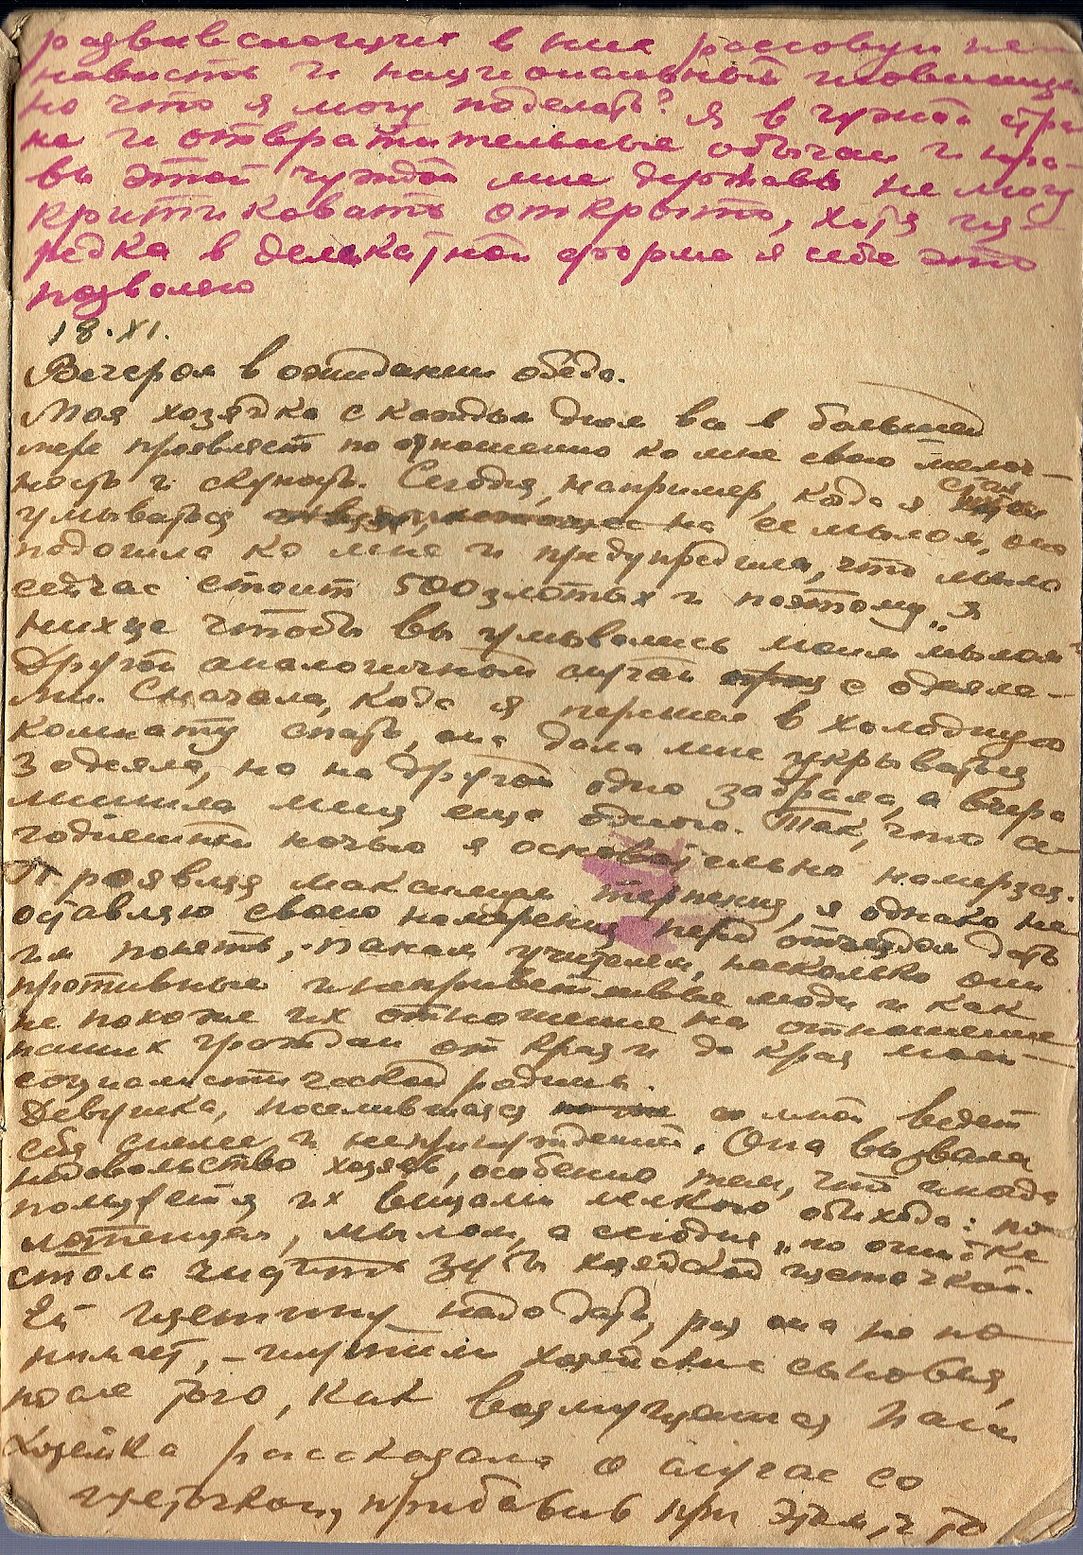 развивающих в них рассовую нен
нависть и национальный шовинизм
но что я могу поделать? Я в чужой стра
не и отвратительные обычаи и нра-
вы этой чуждой мне державы не могу
критиковать открыто, хотя из-
редка в деликатной форме я себе это
позволяю
18.XI.
Вечером в ожидании обеда.
Моя хозяйка с каждым днем все в большей
мере проявляет по отношению ко мне свою мелоч-
ность и скупость. Сегодня, например, когда я стал
умываться на ее мылом, она
подошла ко мне и предупредила, что мыло
сейчас стоит 500 злотых и поэтому „я
нихце чтобы вы умывались моим мылом"
Другой аналогичный случай с одеяла-
ми. Сначала, когда я перешел в холодную
комнату спать, она дала мне укрываться
3 одеяла, но на другой одно забрала, а вчера
лишила меня еще одного. Так, что се-
годняшней ночью я основательно намерзся.
Проявляя максимум терпения, я однако не
оставляю своего намерения перед отъездом дать
им понять, панам учителям, насколько они
противные и неприветливые люди и как
не похоже их отношение на отношение
наших граждан от края и до края моей
социалистической родины.
Девушка, поселившаяся со мной ведет
себя смелее и непринужденней. Она вызвала
недовольство хозяев, особенно тем, что иногда
пользуется их вещами мелкого обихода: по-
лотенцем, мылом, а сегодня „по ошибке
стала чистить зубы хозяйской щеточкой.
Ей щетину надо дать, раз она не по-
нимает, – шутили хозяйские сыновья,
после того, как возмущенная пани
хозяйка рассказала о случае со
щеточкой, прибавив при этом, что